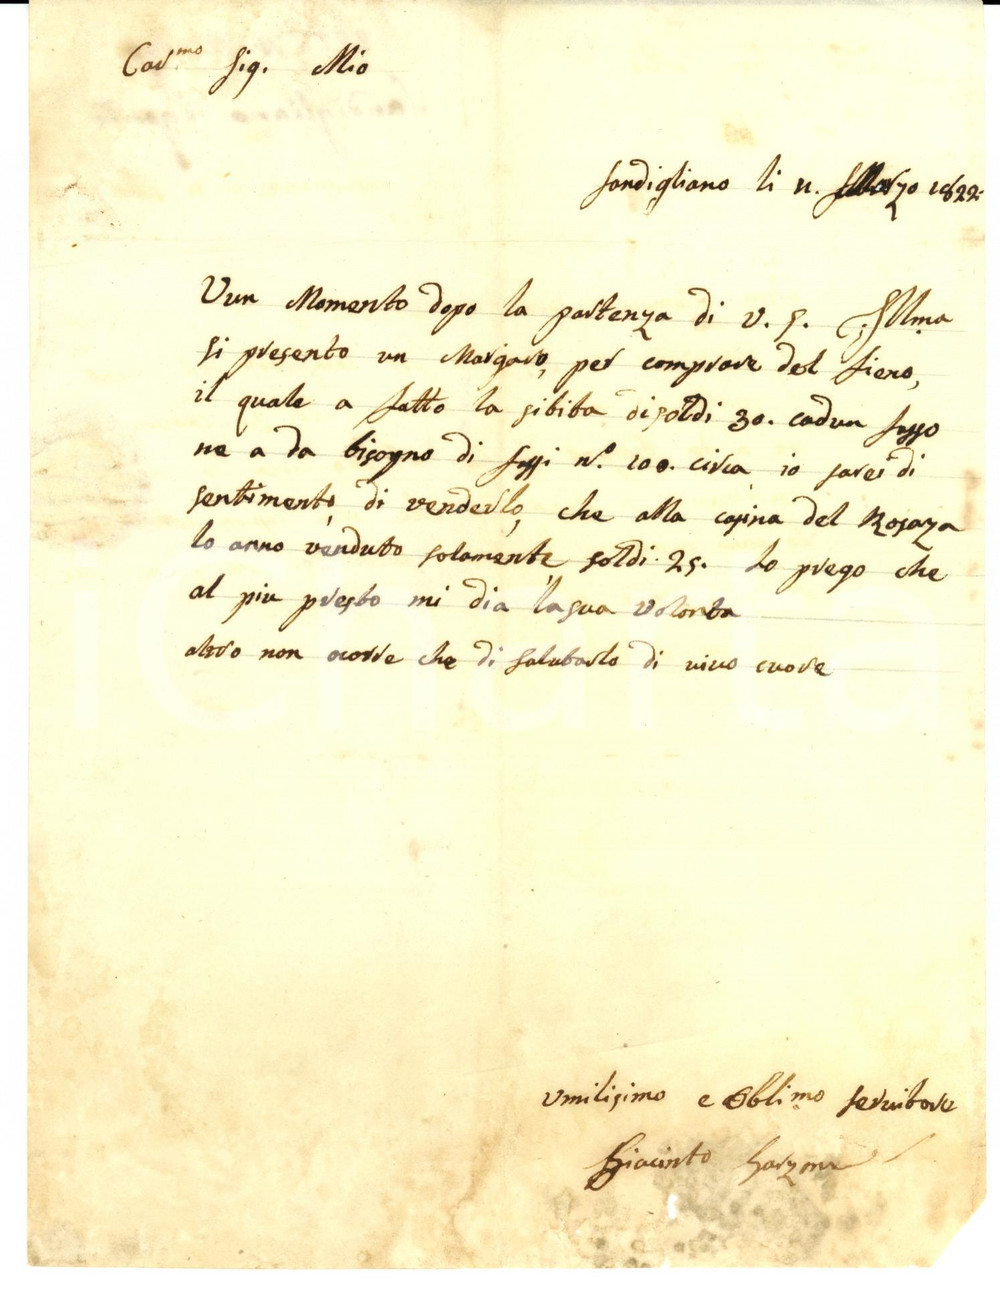 Car.mo Sig. Mio
Sandigliano li 11. Marzo 1822.
Vun Momento dopo la partenza di V. S. Illma
si presento un Margaro, per comprare del fieno,
il quale a fatto la sibita di soldi 30. cadun
ne a da bisogno di n.o 100. circa io sarei di
sentimento, di venderlo, che alla casina del Rosaza
lo anno venduto solamente soldi 25. Lo prego che
al piu presto mi dia la sua volonta
altro non ocorre che di salutarlo di vivo cuore
umilisimo e Obblimo servitore
Giacinto
renarta